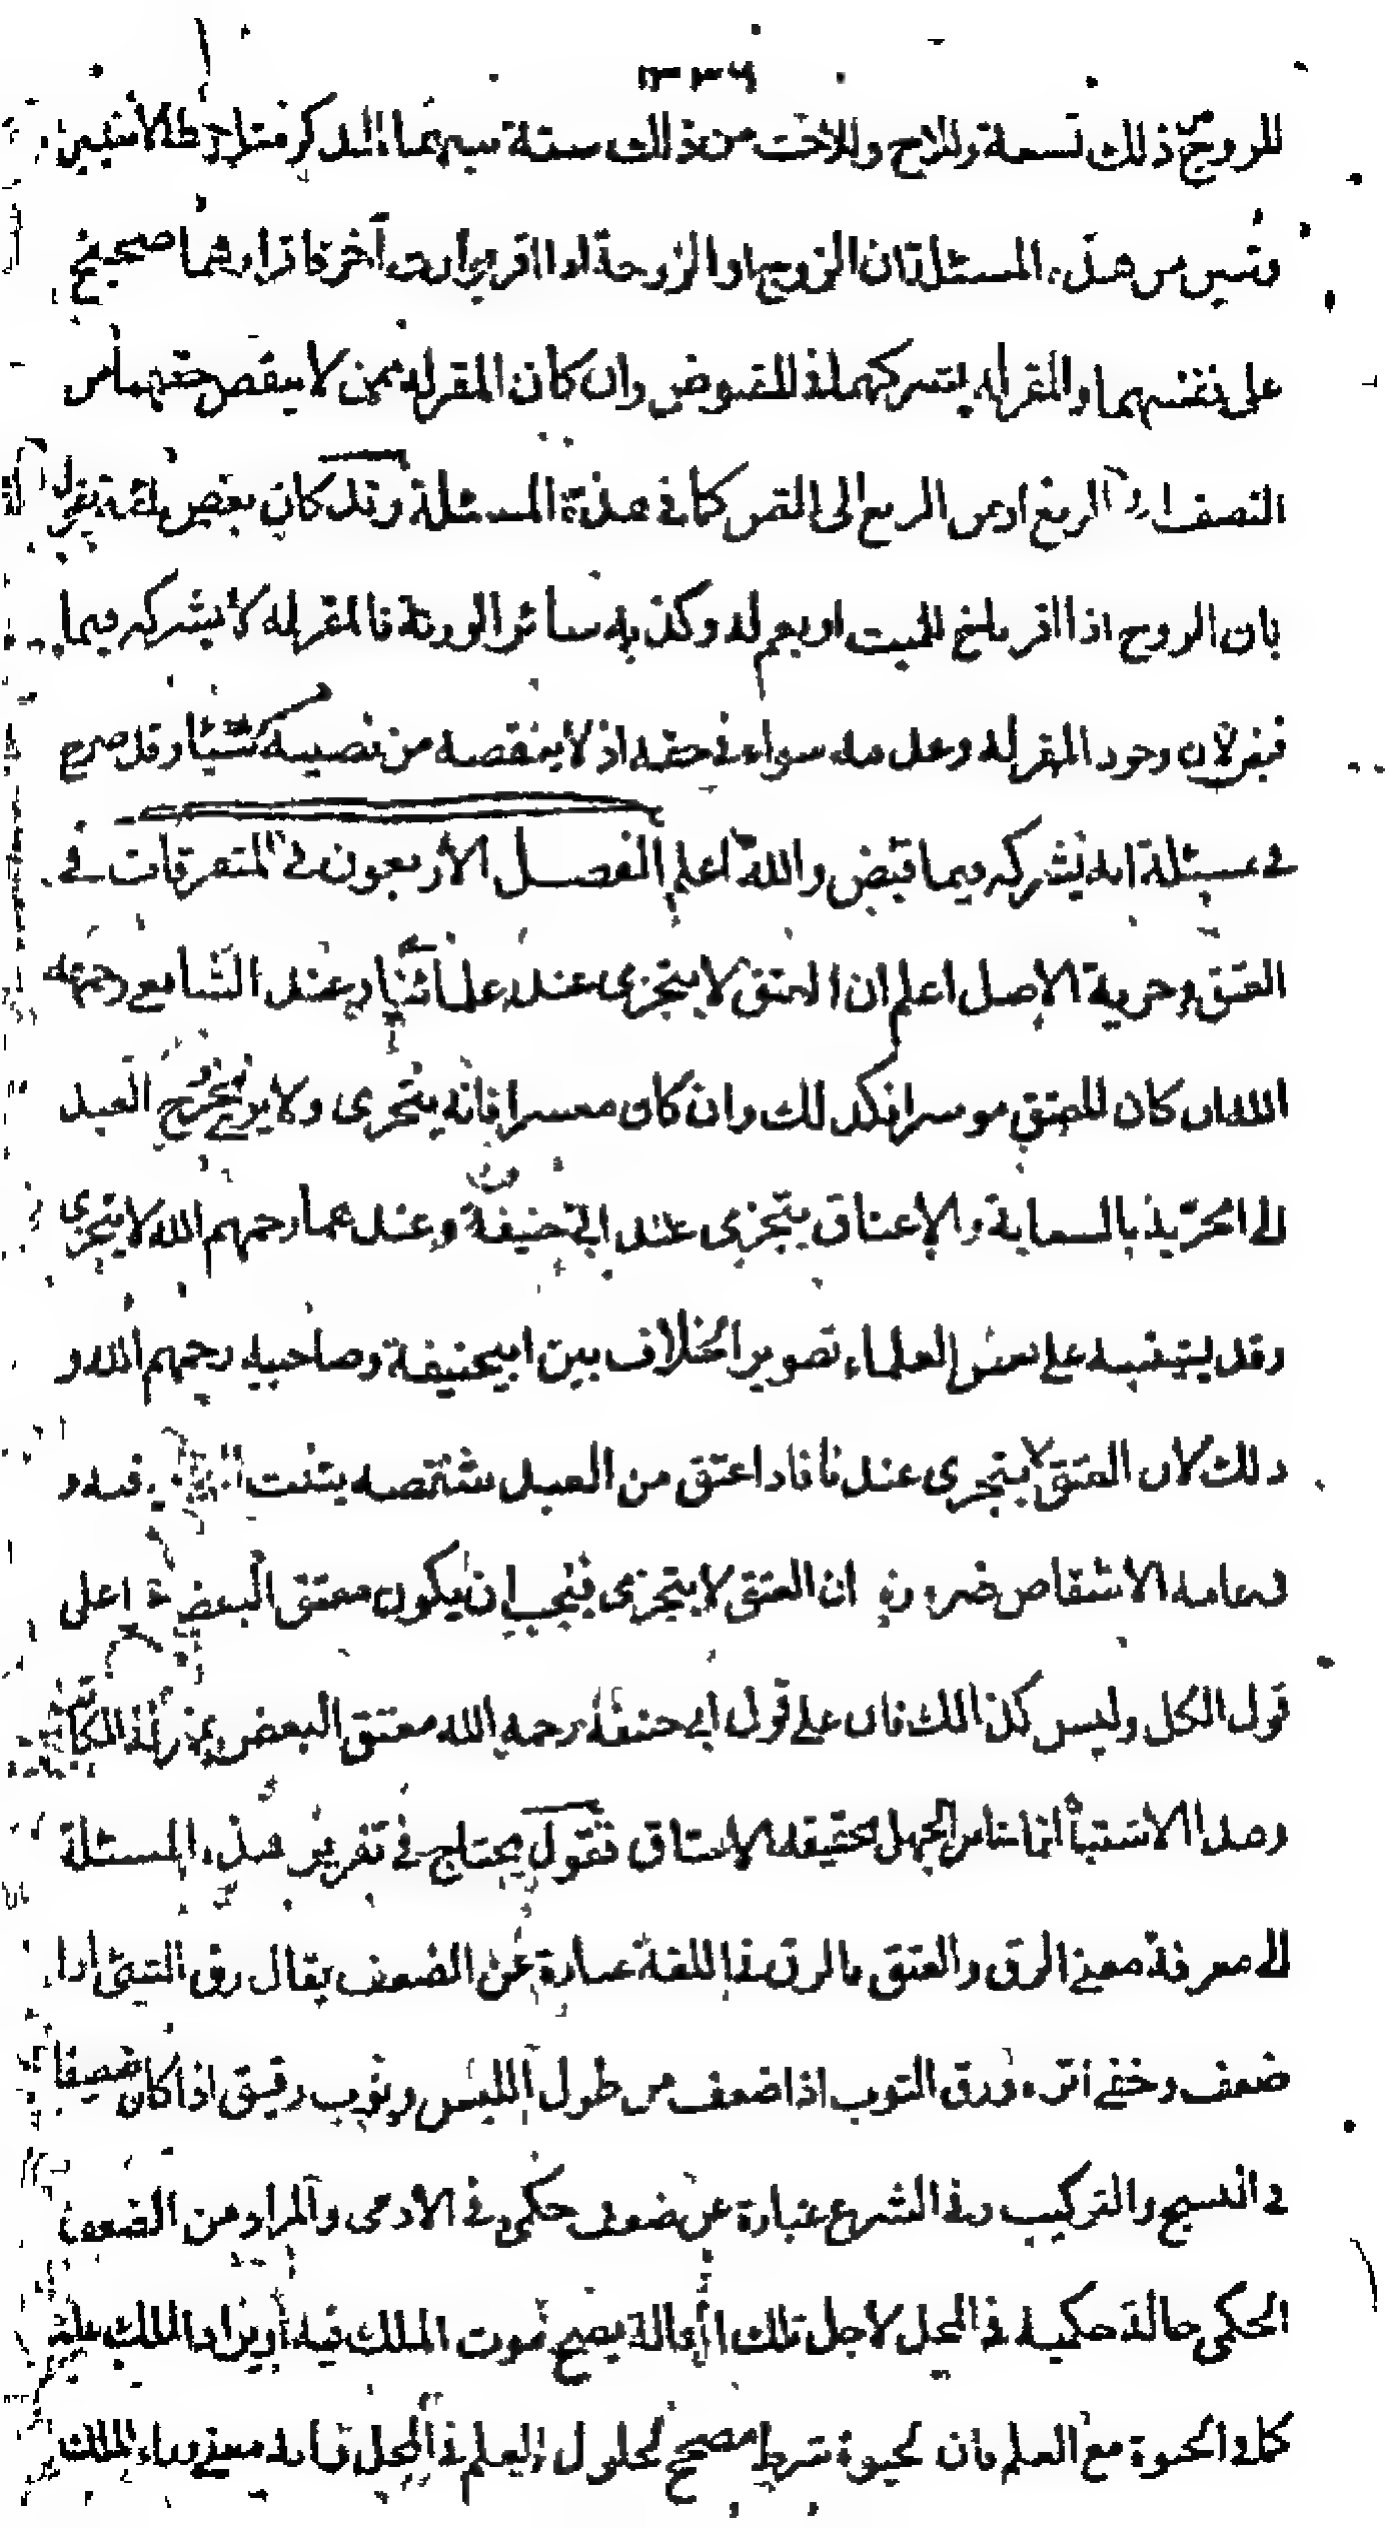 للزوج من ذلك تسعة وللاخ وللاخت من ذلك ستة بينهما للذكر مثل حظ الانثيين
وتبين من هذه المسئلة ان الزوج او الزوجة اذا اقر بوارث آخر فاقرارهما صحيح
على نفسهما والمقر له يشركهما في المقبوض وان كان المقر له ممن لا ينقص حقهما من
النصف الى الربع او من الربع الى الثمن كما في هذه المسئلة وقد كان بعض يقول
بان الزوج اذا اقر باخ للميت او بعم له وكذبه سائر الورثة فالمقر له لا يشركه فيما
قبض لان وجود المقر له وعدمه سواء في حقه اذ لا ينقصه من نصيبه شيئا وقد صرح
في مسئلة انه يشركه فيما قبض والله اعلم الفصل الأربعون في المتفرقات في
العتق وحرية الاصل اعلم ان العتق لا يتجزى عند علمائنا وعند الشافعي رحمه
الله ان كان المعتق موسرا فكذلك وان كان معسرا فانه يتجزى ولا يرى تخريج العبد
الى الحرية بالسعاية والاعتاق يتجزى عند ابي حنيفة وعندهما رحمهم الله لا يتجزى
وقد يشتبه على بعض العلماء تصوير الخلاف بين ابيحنيفة وصاحبيه رحمهم الله و
ذلك لان العتق لا يتجزى عندنا فاذا اعتق من العبد شقصه يثبت فيه و
في عامة الاشقاص ضرورة ان العتق لا يتجزى فيجب ان يكون معتق البعض على
قول الكل وليس كذلك فان على قول ابي حنيفة رحمه الله معتق البعض بمنزلة المكاتب
وهذا الاشتباه انما نشا من الجهل بحقيقة الاعتاق فنقول يحتاج في تقرير هذه المسئلة
الى معرفة معنى الرق والعتق فالرق في اللغة عبارة عن الضعف يقال رق الشئ اذا
ضعف وخفي اثره ورق الثوب اذا ضعف من طول اللبس وثوب رقيق اذا كان ضعيفا
في النسج والتركيب وفي الشرع عبارة عن ضعف حكمي في الادمى والمراد من الضعف
الحكمى حالة حكمية في المحل لاجل تلك الحالة يصح ثبوت الملك فيه
كما في الحيوة مع العلم فان الحيوة شرط مصحح لحلول العلم في المحل الملك